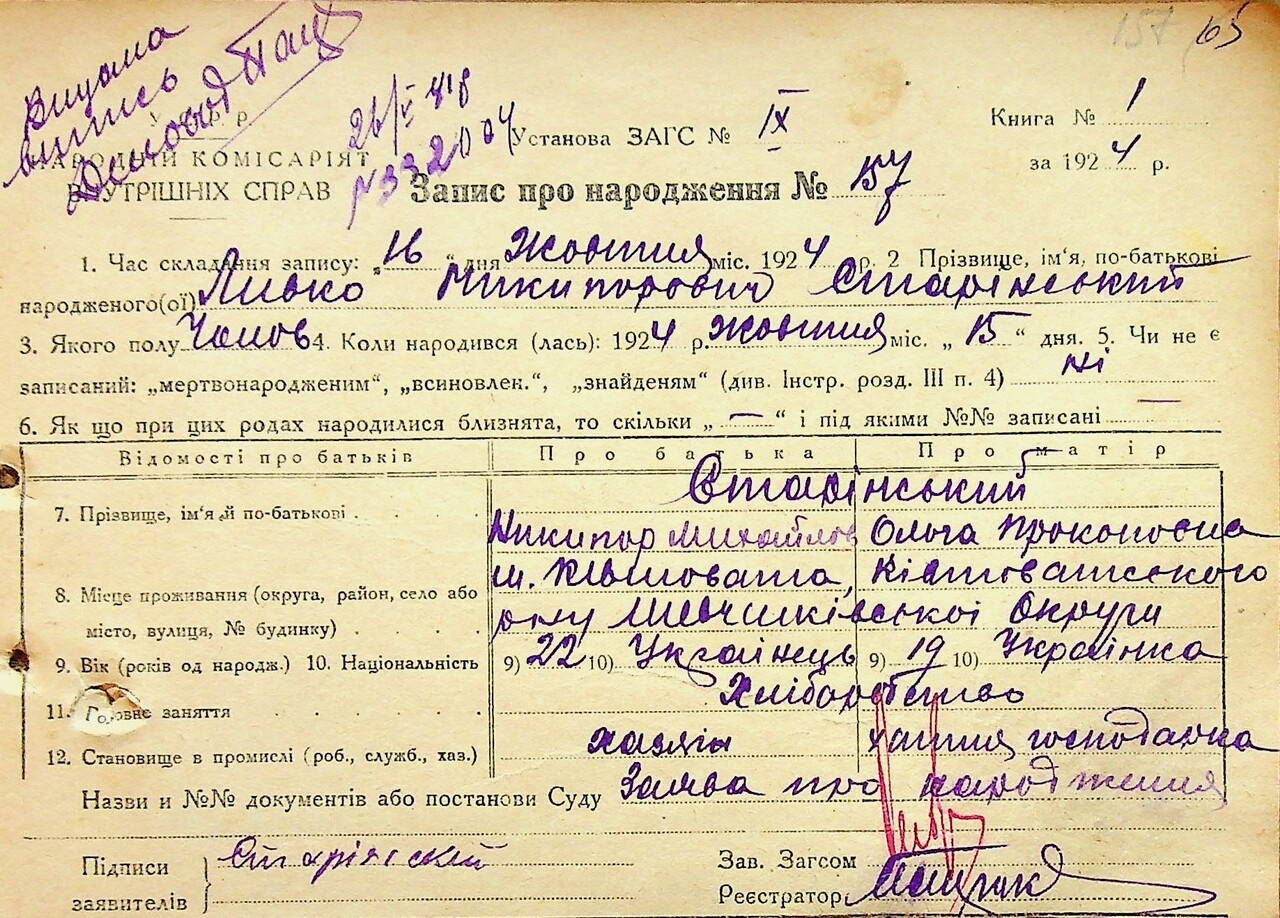 157 65
Видана
випись
26/V 41р
№332004
У. С. Р. Р.
НАРОДНІЙ КОМІСАРІЯТ
ВНУТРІШНІХ СПРАВ
Установа ЗАГС № IX
Книга № 1
за 1924 р.
Запис про народження № 157
1. Час складання запису: „16“ дня Жовтня міс. 1924 р. 2 Прізвище, ім'я, по-батькові
народженого(ої) Левко Никипорович Старінський
3. Якого полу Чолов 4. Коли народився (лась): 1924 р. жовтня міс. „15“ дня. 5. Чи не є
записаний: „мертвонародженим“, „всиновлен.“, „знайденям“ (див. Інстр. розд. III п. 4) ні
6. Як що при цих родах народилися близнята, то скільки „—“ і під якими №№ записані —
Відомості про батьків Про батька Про матір
Старінський
7. Прізвище, ім'я й по-батькові Никипор Михайлов Ольга Прокоповна
8. Місце проживання (округа, район, село або м. Ківшовата, Ківшоватського
місто, вулиця, № будинку) р-ну Шевчинківської Округи
9. Вік (років од народж.) 10. Національність 9) 22 10) Українець 9) 19 10) Українка
11. Головне заняття Хліборобство
12. Становище в промислі (роб., служб., хаз.) хазяін хатня господарка
Назви и №№ документів або постанови Суду Заява про народження
Підписи
заявителів Старінский
Зав. Загсом
Реєстратор